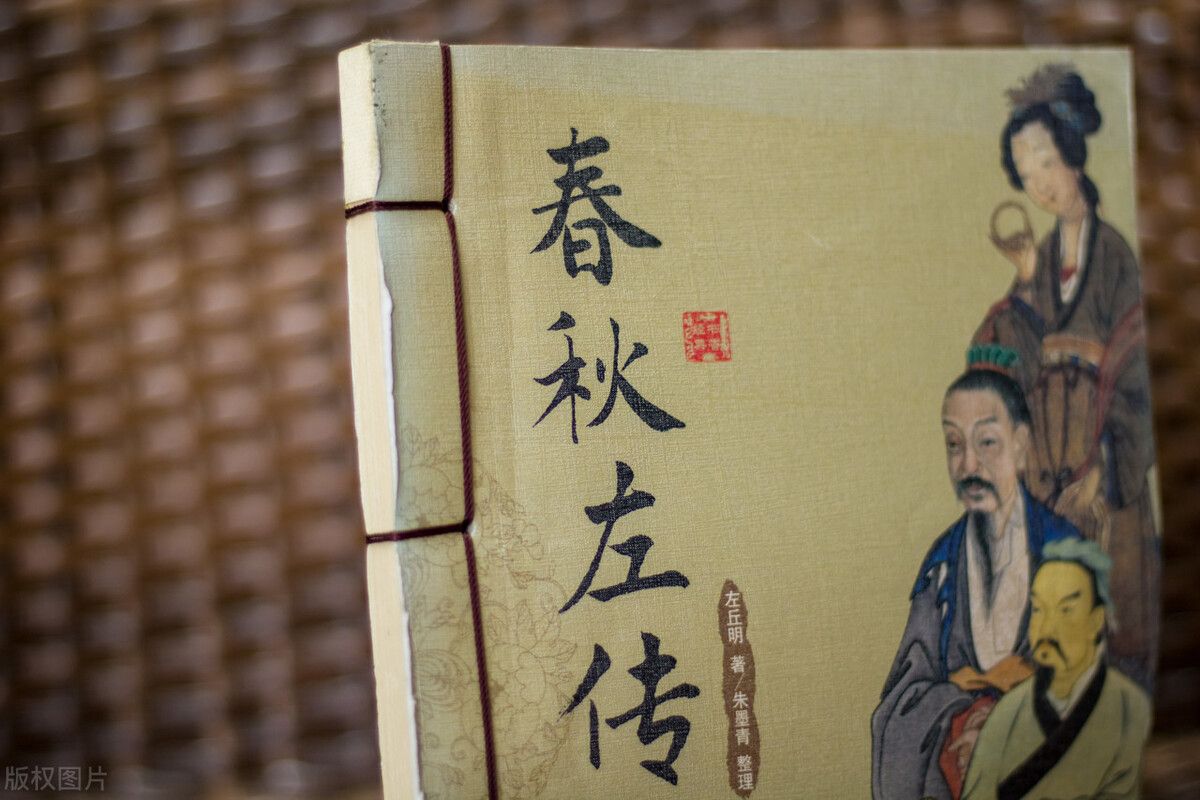 春秋左传
左丘明 著/朱墨青 整理
版权图片